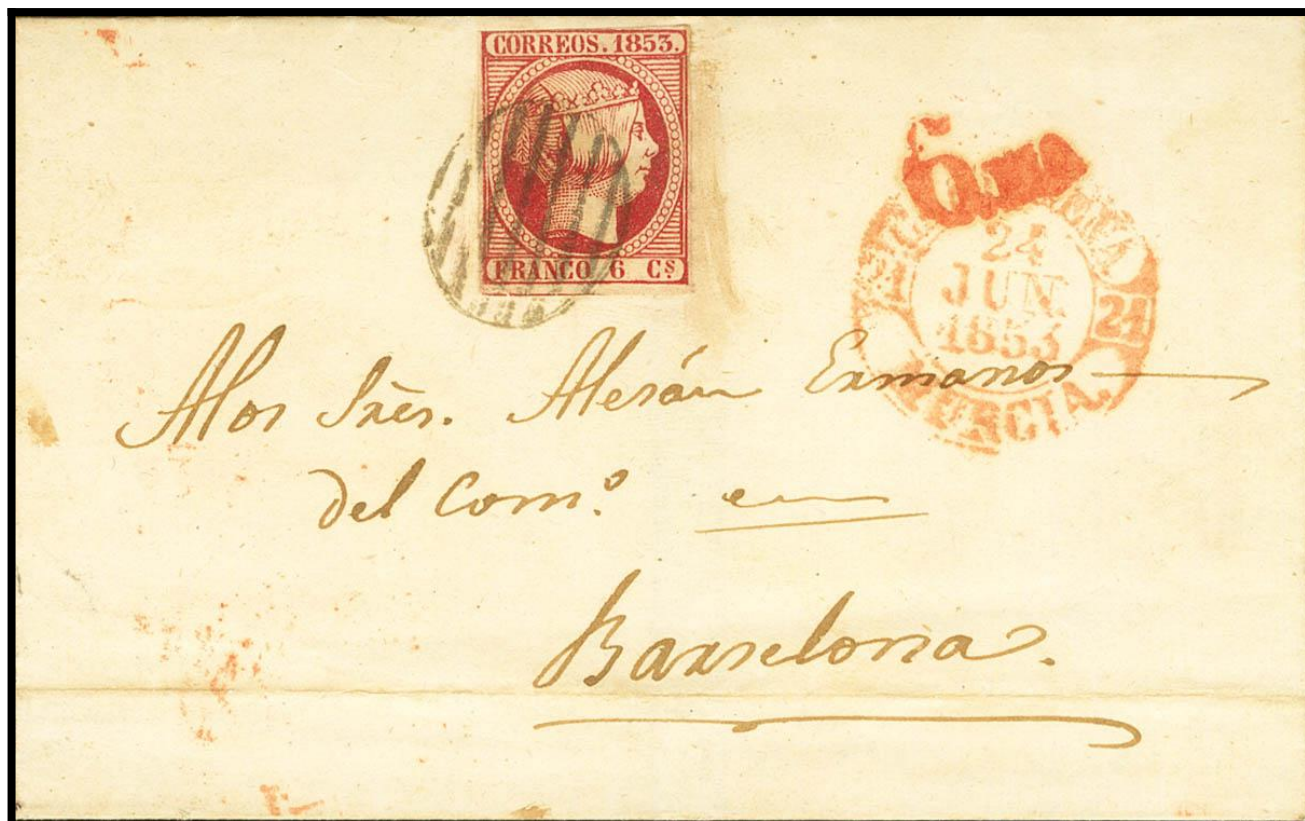 CORREOS. 1853.
FRANCO 6 Cs
6 Rs
24
JUN.
1853
24
MURCIA.
Alos Sres. Alesán Ermanos
del Comº. en
Barselona.